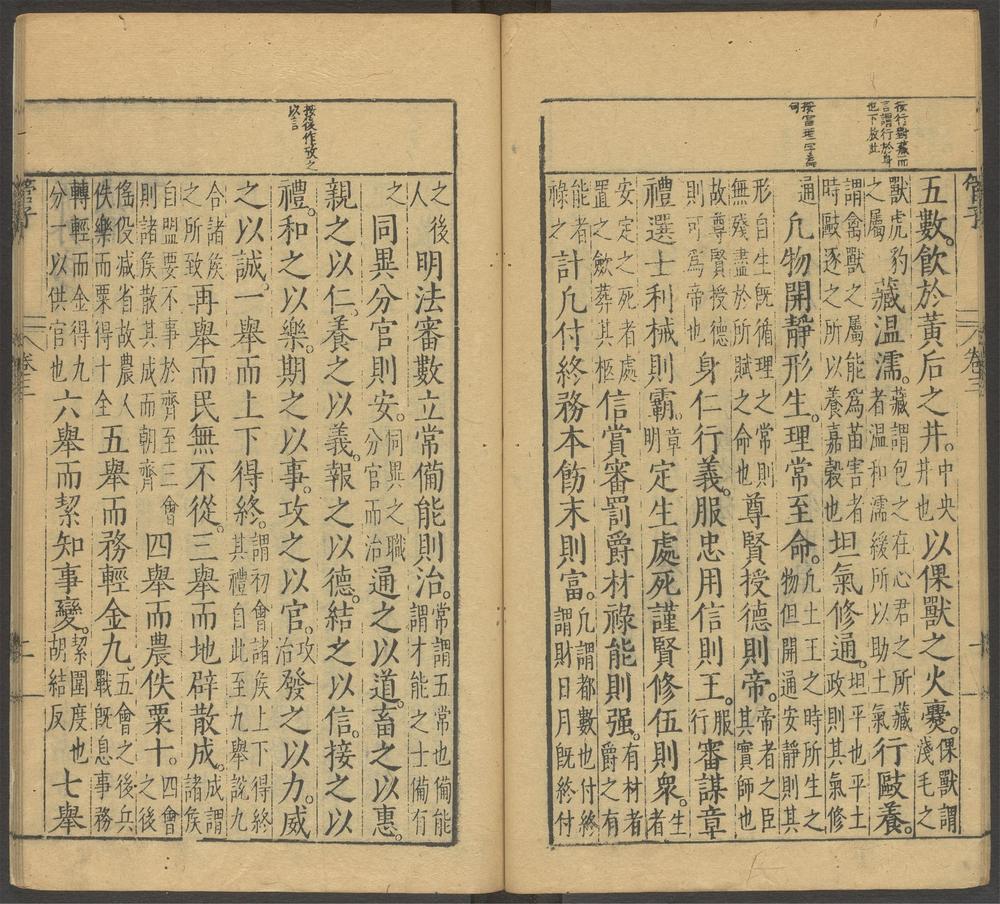 按行對藏而
言謂行於身
也下放此
管子
卷三
五數飲於黃后之井。中央井也以倮獸之火爨。倮獸謂淺毛之
獸虎豹之屬藏温濡。藏謂包之在心君之所藏者温和濡緩所以助土氣行敺養。
謂禽獸之屬能爲苗害者時敺逐之所以養嘉穀也坦氣修通。坦平也平土政則其氣修
通凡物開靜形生。理常至命。凡土王之時所生之物但開通安靜則其
形自生旣循理之常則無殘盡於所賦之命也尊賢授德則帝。帝者之臣其實師也
故尊賢授德則可爲帝也身仁行義。服忠用信則王。服行審謀章
禮選士利械則霸。章明定生處死謹賢修伍則衆。生者
安定之死者處置之斂葬其柩信賞審罰爵材祿能則强。有材者爵之有
能者祿之計凡付終務本飭末則富。凡謂都數也付終謂財日月旣終付
按後作攻之
以言
之後人明法審數立常備能則治。常謂五常也備能謂才能之士備有
之同異分官則安。同異之職分官而治通之以道。畜之以惠。
親之以仁。養之以義。報之以德。結之以信。接之以
禮。和之以樂。期之以事。攻之以官。攻治發之以力。威
之以誠。一舉而上下得終。謂初會諸侯上下得終其禮自此至九舉說九
合諸侯之所致再舉而民無不從。三舉而地辟散成。成謂諸侯
自盟要不事於齊至三會則諸侯散其成而朝齊四舉而農佚粟十。四會之後
徭役減省故農人佚樂而粟得十全五舉而務輕金九。五會之後兵戰旣息事務
轉輕而金得九分一以供官也六舉而絜知事變。絜圍度也胡結反七舉
管子
卷三